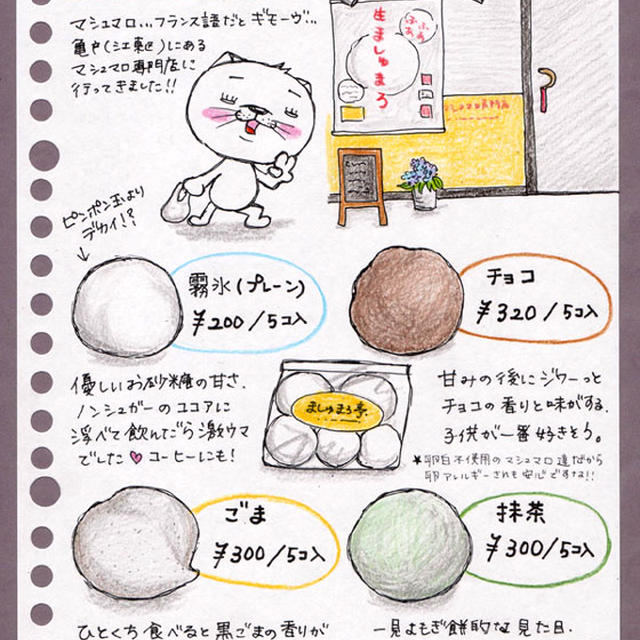 マシュマロ...フランス語だとギモーヴ...
亀戸(江東区)にある
マシュマロ専門店に
行ってきました!!
生ましゅまろ
ふあふあ
ピンポン玉より
デカイ!?
霧氷(プレーン)
¥200/5コ入
チョコ
¥320/5コ入
優しいお砂糖の甘さ。
ノンシュガーのココアに
浮べて飲んだら激ウマ
でした♥コーヒーにも!
ましゅまろ亭
甘みの後にジワーっと
チョコの香りと味がする。
子供が一番好きそう。
★卵白不使用のマシュマロ達だから
卵アレルギーさんも安心ですな!!
ごま
¥300/5コ入
抹茶
¥300/5コ入
ひとくち食べると黒ごまの香りが
一見よもぎ餅的な見た目。